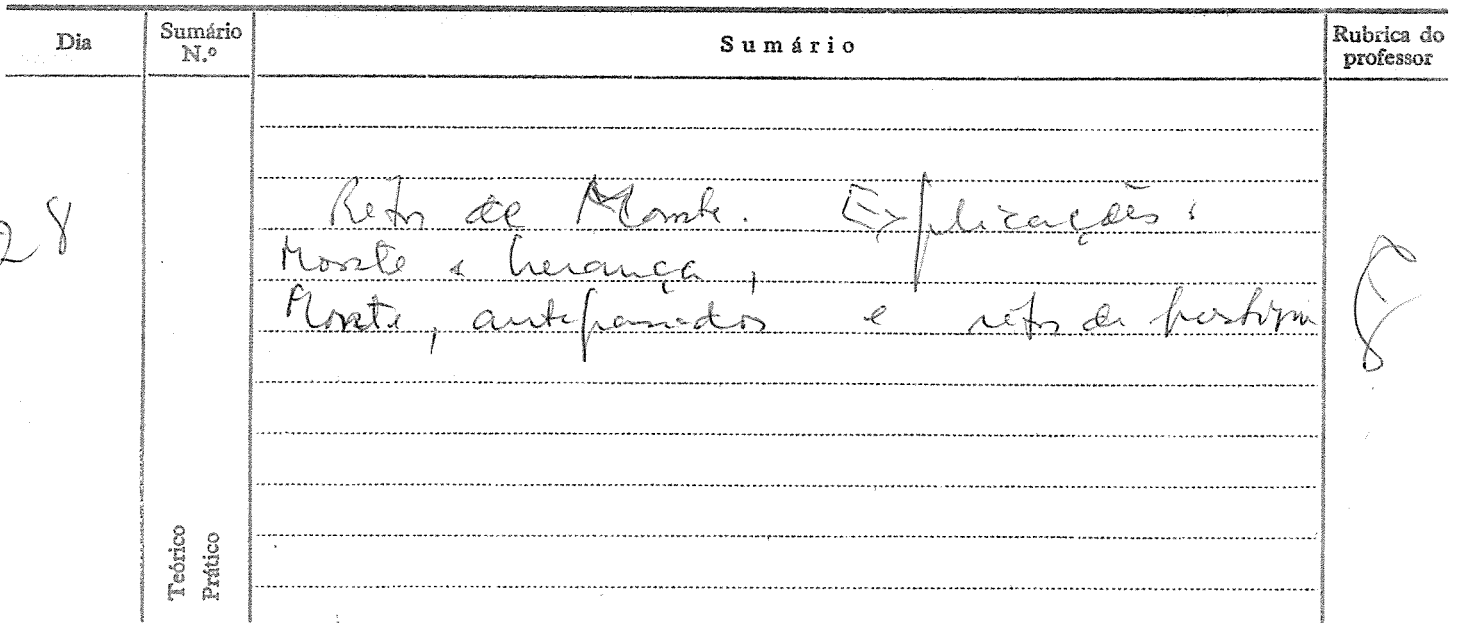 Dia
Sumário N.º
Sumário
Rubrica do professor
28
Ritos de Morte. Explicações:
Morte e herança,
Morte, antepassados e ritos de
Teórico
Prático